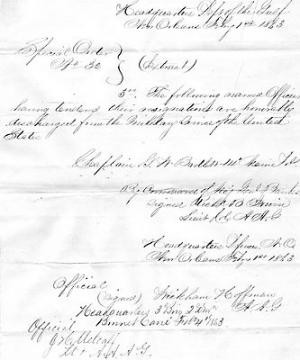 Headquarters Dept of the Gulf
New Orleans Feby 1st 1863
Special Orders
No 32
(Extract)
3rd. The following named Officers
having tendered their resignations are honorably
discharged from the Military Service of the United
States
Chaplain G. W.
By Command of Maj Genl
signed Richd B Irwin
Lieut Col A A G
Headquarters
New Orleans Feby 1863
Official
(signed) Wickham Hoffman
A. A. G
Headquarters 3 Brig 2 Div
Bonnet Carre Feb 4th 1863
Official
G H Metcalf
A. A. A G.